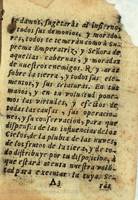 y daños, sugetarás al infierno,
y todos sus demonios, y moradas
res, y todos te temerán como à su-
prema Emperatriz, y Señora de
aquellas cabernas, y moradas
de nuestros enemigos.
sobre la tierra, y todos
mentos, y sus criaturas. En tus
manos, y en tu voluntad pone-
mos las virtudes, y efectos de
todas las causas, sus operacio-
nes, y su conservacion, para que
dispenses de las influencias de los
Cielos, de la pluvia de las nubes,
de los frutos de la tierra, y de to-
do distribuye por tu disposicion, à
que estará atenta nuestra volun-
para executar la tuya.
A3